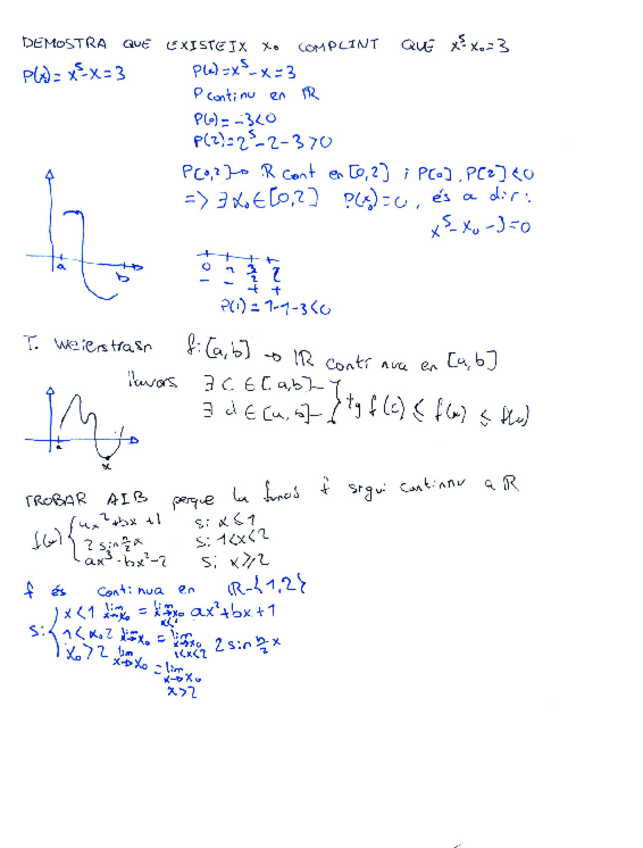 DEMOSTRA QUE EXISTEIX x₀ COMPLINT QUE x⁵-x₀=3
P(x)= x⁵-x=3
P(x)=x⁵-x=3
P continu en ℝ
P(0)=-3<0
P(2)=2⁵-2-3>0
P[0,2]→ℝ cont en [0,2] i P[0].P[2]<0
=> ∃ x₀∈[0,2] P(x₀)=0, és a dir:
x₀⁵-x₀-3=0
a b
0 1 3/2 2
- - + +
P(1)=1-1-3<0
T. Weierstrass f:[a,b]→ℝ contínua en [a,b]
llavors ∃ c ∈[a,b]
∃ d ∈[a,b] } tq f(c) ≤ f(x) ≤ f(d)
a
x
TROBAR A I B perque la funció f sigui continu a ℝ
f(x) { ax²+bx+1 si x≤1
2 sin π/2 x si 1<x<2
ax³-bx²-2 si x⩾2
f és continua en ℝ-{1,2}
si { x<1 lim x→x₀ = lim x→x₀ x<1 ax²+bx+1
1<x₀2 lim x→x₀ = lim x→x₀ 1<x<2 2 sin π/2 x
x₀>2 lim x→x₀ = lim x→x₀ x>2